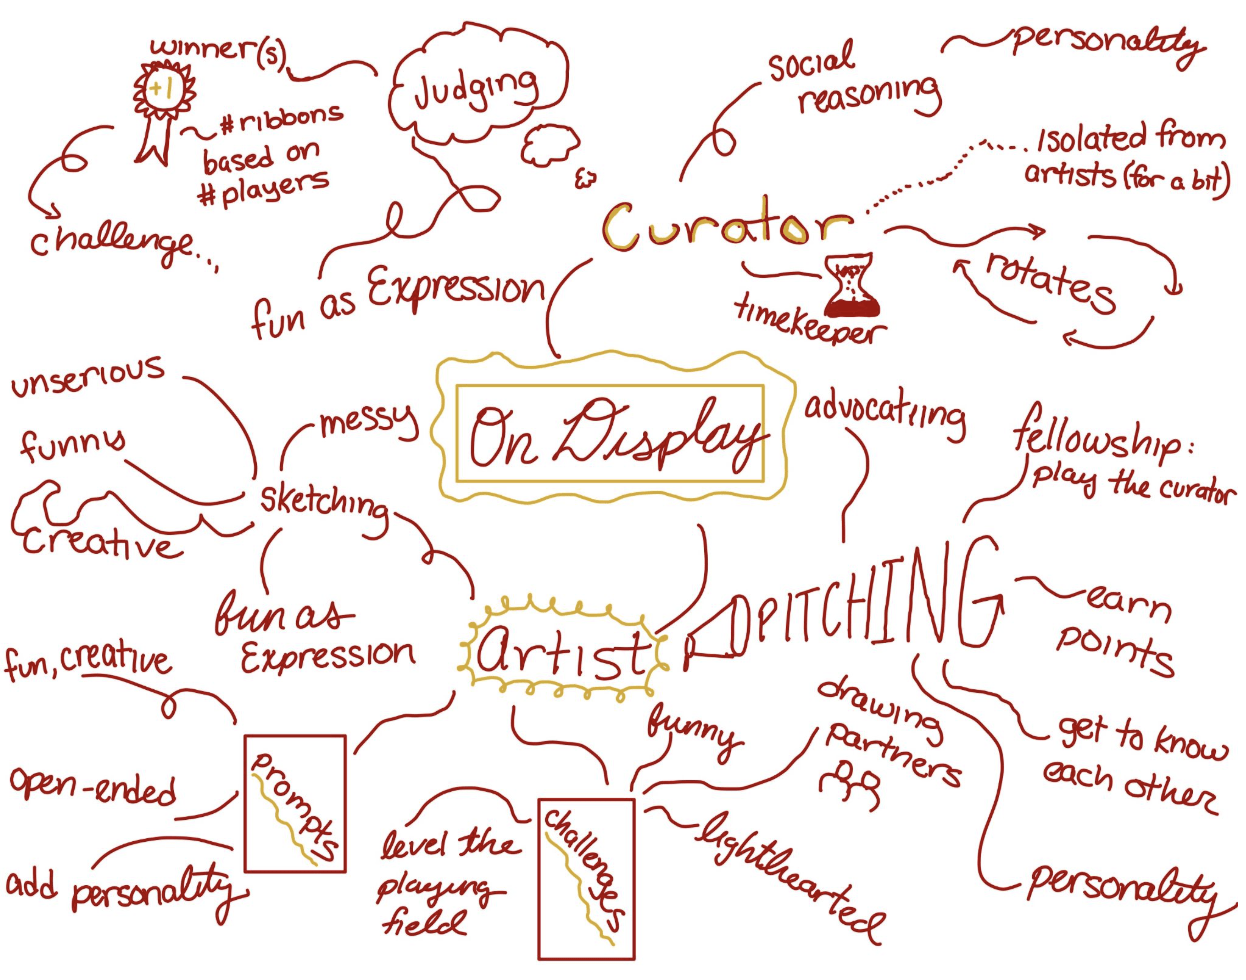 winner(s)
+1
#ribbons
based on
#players
challenge...
Judging
fun as Expression
social
reasoning
personality
Isolated from
artists (for a bit)
Curator
rotates
timekeeper
On Display
unserious
funny
creative
messy
sketching
fun as
Expression
advocating
fellowship:
play the curator
PITCHING
earn
points
get to know
each other
personality
Artist
fun, creative
open-ended
add personality
prompts
level the
playing
field
challenges
funny
drawing
partners
lighthearted